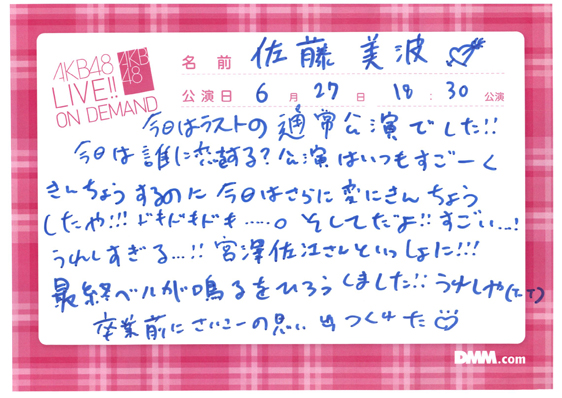 AKB48
LIVE!!
ON DEMAND
AKB48
名前 佐藤 美波
公演日 6月27日 18:30 公演
今日はラストの通常公演でした!!
今日は誰に恋をする?公演はいつもすごーく
きんちょうするのに今日はさらに変にきんちょう
したや!!!ドキドキドキ.....。そしてだよ!!すごい...!
うれしすぎる...!!宮澤佐江さんといっしょに!!!
最終ベルが鳴るをひろうしました!!うれしや(TT)
卒業前にさいこーの思い出つくれた
DMM.com